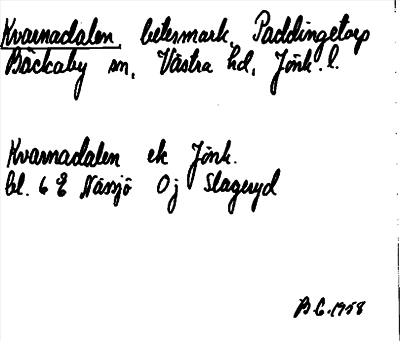 Kvarnadalen, betesmark, Paddingetorp
Bäckaby sn, Västra hd, Jönk. l.
Kvarnadalen ek Jönk.
bl. 6 E Nässjö Oj Slageryd
B.G. 1958